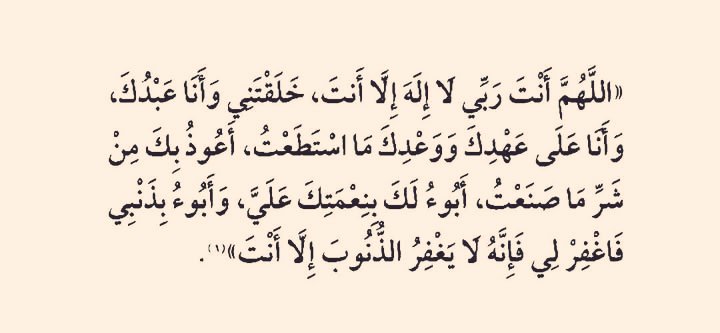 «اللَّهُمَّ أَنْتَ رَبِّي لَا إِلَهَ إِلَّا أَنتَ، خَلَقْتَنِي وَأَنَا عَبْدُكَ،
وَأَنَا عَلَى عَهْدِكَ وَوَعْدِكَ مَا اسْتَطَعْتُ، أَعُوذُ بِكَ مِنْ
شَرِّ مَا صَنَعْتُ، أَبُوءُ لَكَ بِنِعْمَتِكَ عَلَيَّ، وَأَبُوءُ بِذَنْبِي
فَاغْفِرْ لِي فَإِنَّهُ لَا يَغْفِرُ الذُّنُوبَ إِلَّا أَنْتَ»(١).